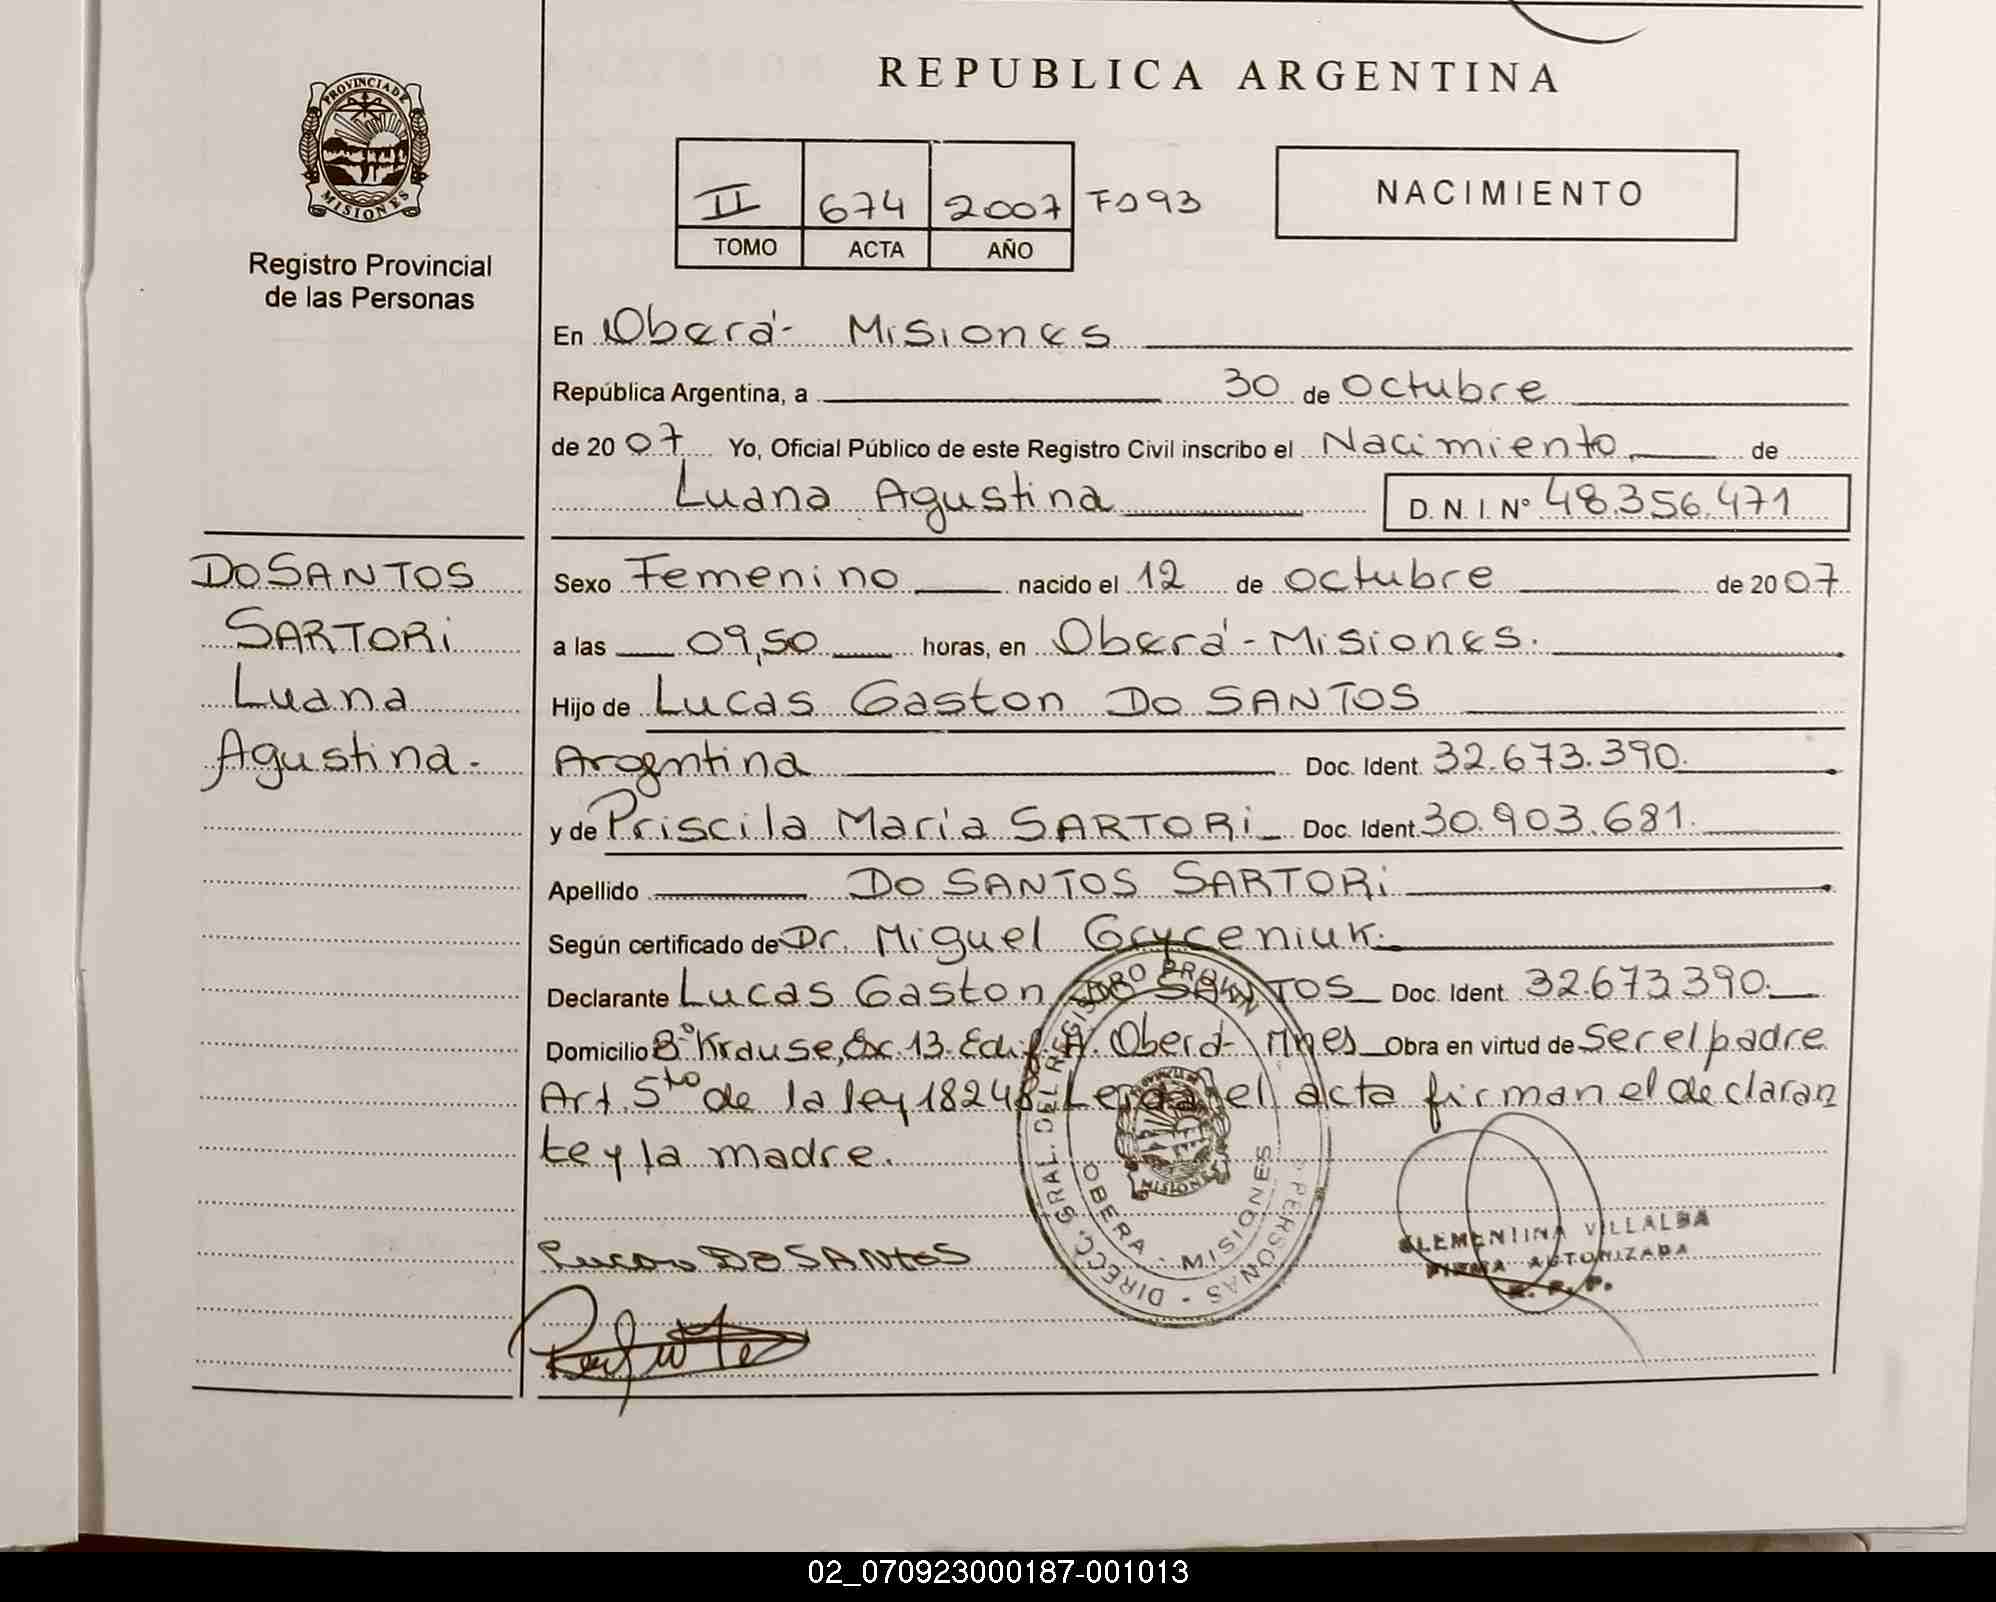 REPUBLICA ARGENTINA
PROVINCIA DE
MISIONES
Registro Provincial
de las Personas
II 674 2007 Fº 93
TOMO ACTA AÑO
NACIMIENTO
En Oberá - Misiones
República Argentina, a 30 de Octubre
de 2007 Yo, Oficial Público de este Registro Civil inscribo el Nacimiento de
Luana Agustina D. N. I. Nº 48.356.471
DO SANTOS
SARTORi
Luana
Agustina.-
Sexo Femenino nacido el 12 de Octubre de 2007
a las 09,50 horas, en Oberá - Misiones.
Hijo de Lucas Gaston DO SANTOS
Argentina Doc. Ident. 32.673.390.
y de Priscila María SARTORi Doc. Ident. 30.903.681.
Apellido DO SANTOS SARTORi
Según certificado de Dr. Miguel Gryceniuk.
Declarante Lucas Gaston DO SANTOS Doc. Ident. 32673390.
Domicilio Bº Krause, Ex. 13. Edif. A. Oberá - Mnes Obra en virtud de Ser el padre
Art. 5to de la ley 18248. Leida el acta firman el declaran
te y la madre.
DIRECC. GRAL. DEL REGISTRO PROVIN PERSONAS
OBERA - MISIONES
MISIONES
Lucas DO SANTOS
CLEMENTINA VILLALBA
FIRMA AUTORIZADA
R. P. P.
02_070923000187-001013